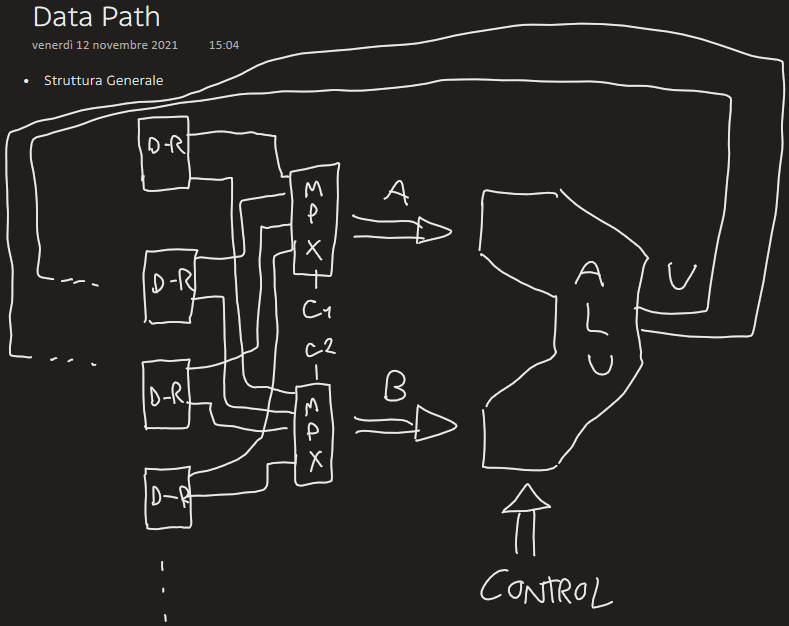 Data Path
venerdì 12 novembre 2021 15:04
• Struttura Generale
D-R
D-R
D-R
D-R
MPX
C1
C2
MPX
A
B
ALU
U
CONTROL